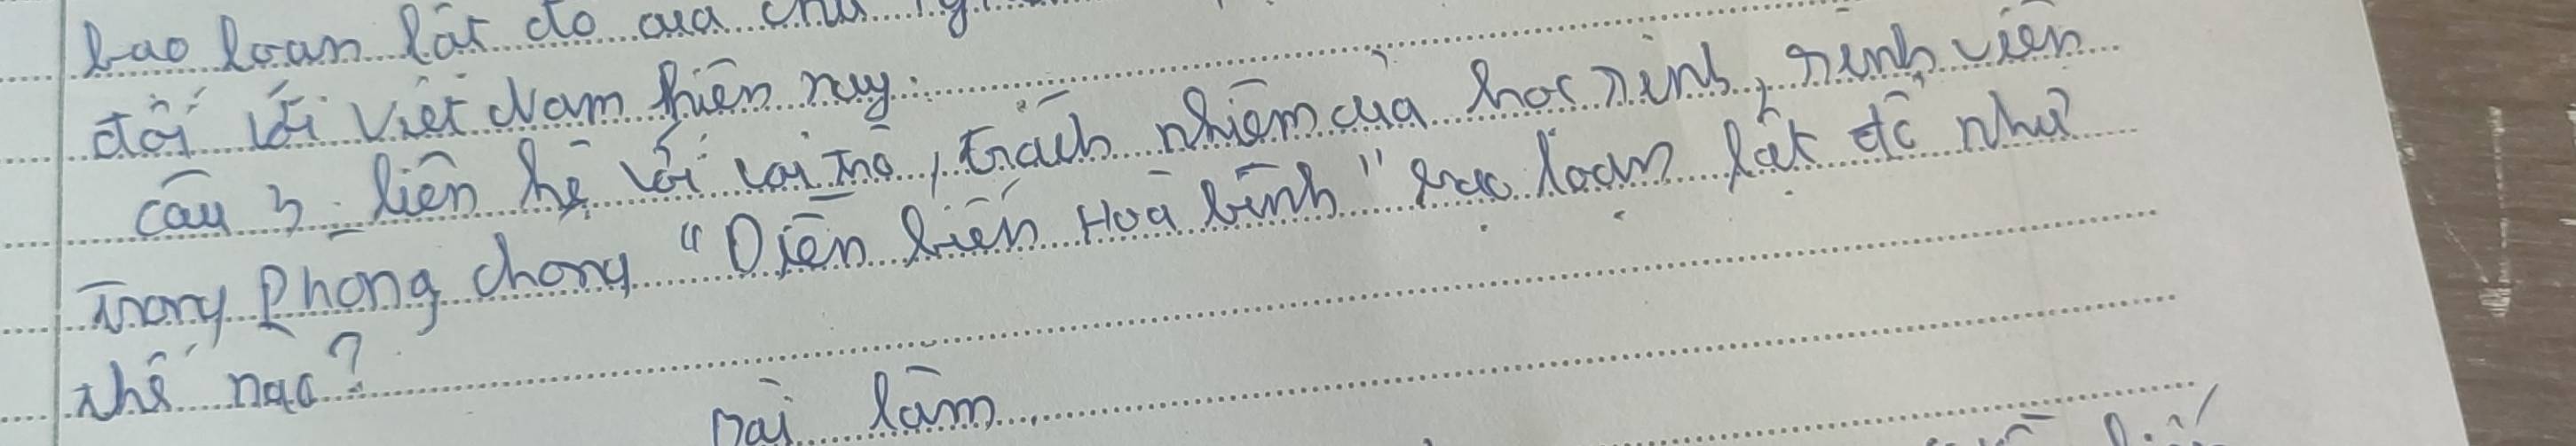 bạo loạn lật đổ của chủ
đối với Việt Nam hiện nay.
Câu 3: liên hệ với vai trò, trách nhiệm của học sinh, sinh viên
trong phòng chống "Diễn biến Hoà bình" bạo loạn lật đổ như
thế nào?
Bài làm